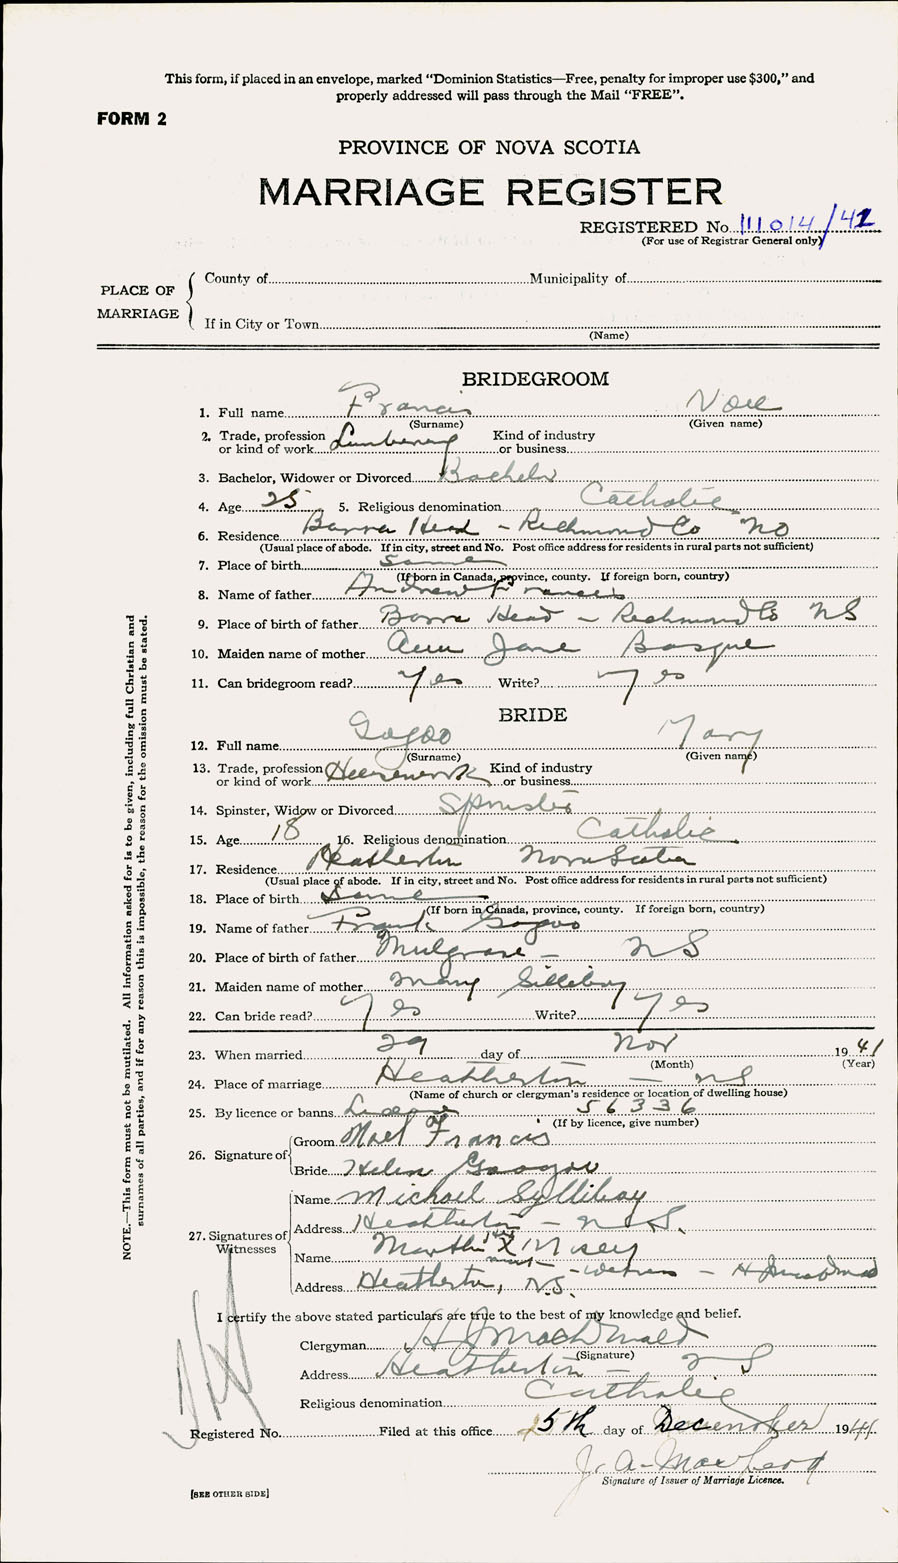 This form, if placed in an envelope, marked “Dominion Statistics—Free, penalty for improper use $300,” and
properly addressed will pass through the Mail “FREE”.
FORM 2
PROVINCE OF NOVA SCOTIA
MARRIAGE REGISTER
REGISTERED No. 11014/42
(For use of Registrar General only)
PLACE OF MARRIAGE
County of Municipality of
If in City or Town
(Name)
BRIDEGROOM
1. Full name Francis Noel
(Surname) (Given name)
2. Trade, profession or kind of work Kind of industry or business
3. Bachelor, Widower or Divorced Bachelor
4. Age 25 5. Religious denomination Catholic
6. Residence Barra Head – Richmond Co
(Usual place of abode. If in city, street and No. Post office address for residents in rural parts not sufficient)
7. Place of birth Same
(If born in Canada, province, county. If foreign born, country)
8. Name of father Andrew Francis
9. Place of birth of father Barra Head – Richmond Co NS
10. Maiden name of mother Ann Jane Basque
11. Can bridegroom read? Yes Write? Yes
BRIDE
12. Full name Gogoo Mary
(Surname) (Given name)
13. Trade, profession or kind of work Housework Kind of industry or business
14. Spinster, Widow or Divorced Spinster
15. Age 18 16. Religious denomination Catholic
17. Residence Heatherton Nova Scotia
(Usual place of abode. If in city, street and No. Post office address for residents in rural parts not sufficient)
18. Place of birth Same
(If born in Canada, province, county. If foreign born, country)
19. Name of father Frank Gogoo
20. Place of birth of father Mulgrave – NS
21. Maiden name of mother Mary Silliboy
22. Can bride read? Yes Write? Yes
23. When married 29 day of Nov 1941
(Month) (Year)
24. Place of marriage Heatherton – NS
(Name of church or clergyman's residence or location of dwelling house)
25. By licence or banns License 56336
(If by licence, give number)
26. Signature of
Groom Noel Francis
Bride Helen Googoo
27. Signatures of Witnesses
Name Michael Sylliboy
Address Heatherton – N.S.
Name Martin his X mark
Address Heatherton, N.S. – witness – H J MacDonald
I certify the above stated particulars are true to the best of my knowledge and belief.
Clergyman H J MacDonald
(Signature)
Address Heatherton – NS
Religious denomination Catholic
Registered No. Filed at this office 5th day of December 1941
J. A. MacLeod
Signature of Issuer of Marriage Licence.
[SEE OTHER SIDE]
NOTE.—This form must not be mutilated. All information asked for is to be given, including full Christian and
surnames of all parties, and if for any reason this is impossible, the reason for the omission must be stated.